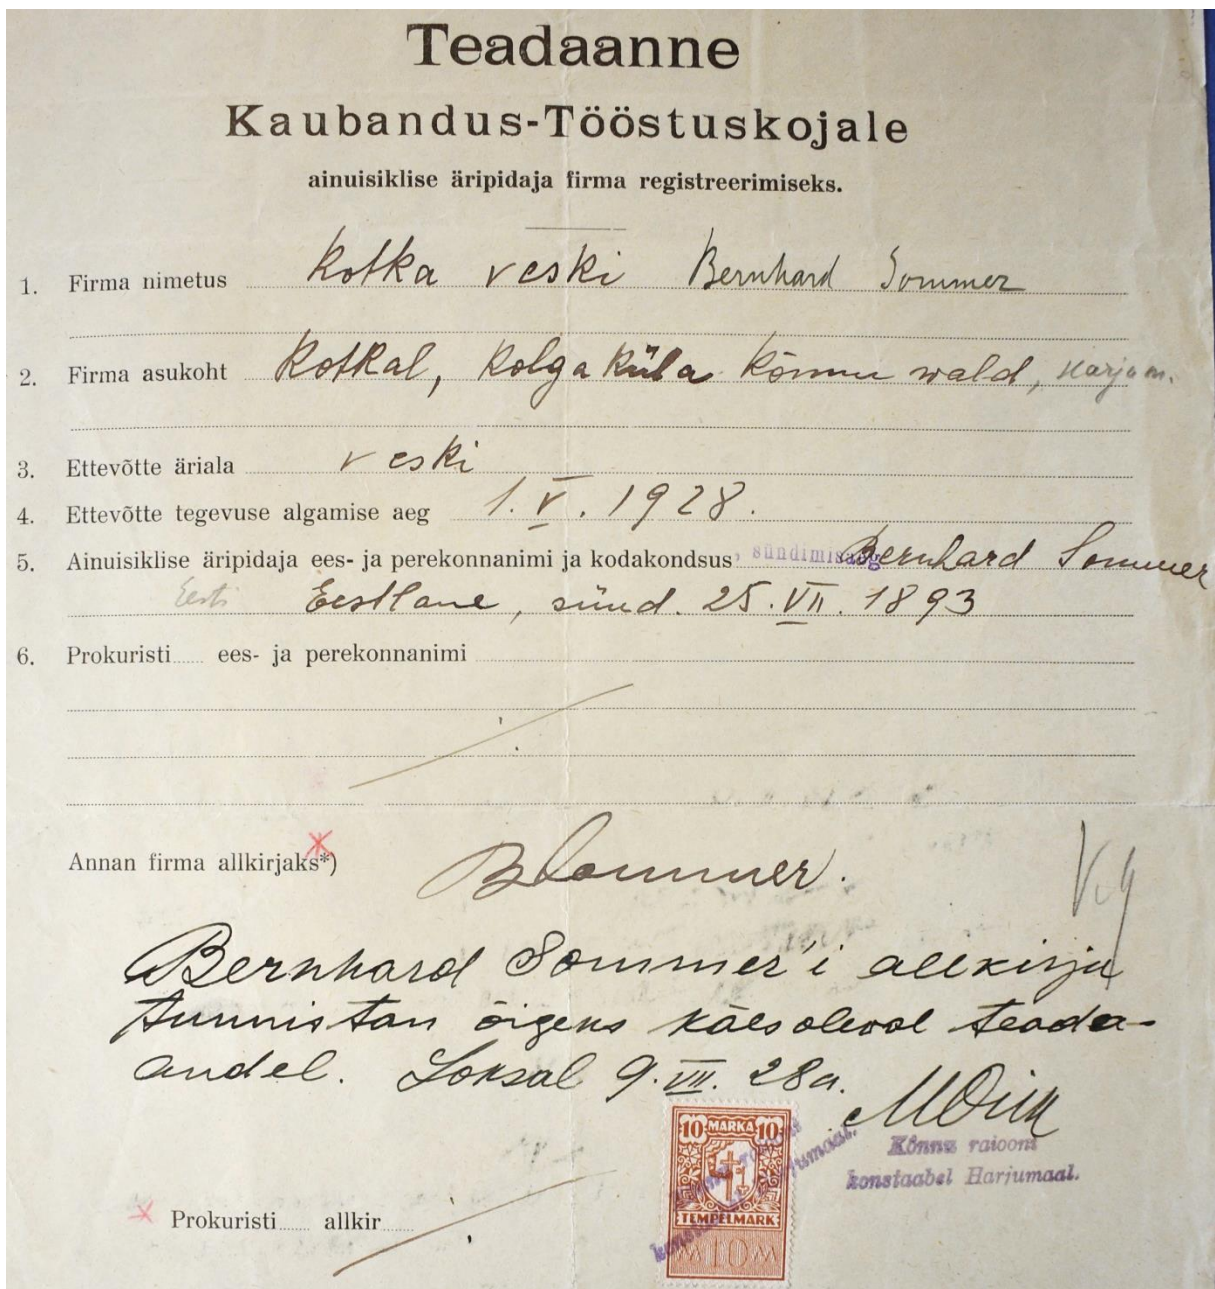 Teadaanne
Kaubandus-Tööstuskojale
ainuisiklise äripidaja firma registreerimiseks.
1. Firma nimetus Kotka veski Bernhard Sommer
2. Firma asukoht Kotkal, Kolga küla Kõnnu wald, Harjum.
3. Ettevõtte äriala veski
4. Ettevõtte tegevuse algamise aeg 1. V. 1928.
5. Ainuisiklise äripidaja ees- ja perekonnanimi ja kodakondsus, sündimisaeg Bernhard Sommer
Eesti Eestlane, sünd. 25. VII. 1893
6. Prokuristi ees- ja perekonnanimi
Annan firma allkirjaks*) BSommer.
Bernhard Sommer'i allkirja
tunnistan õigeks käesoleval teada-
andel. Loksal 9. VII. 28a.
10 MARKA 10
Kõnnu raiooni
konstaabel Harjumaal.
TEMPELMARK
10
Prokuristi allkir